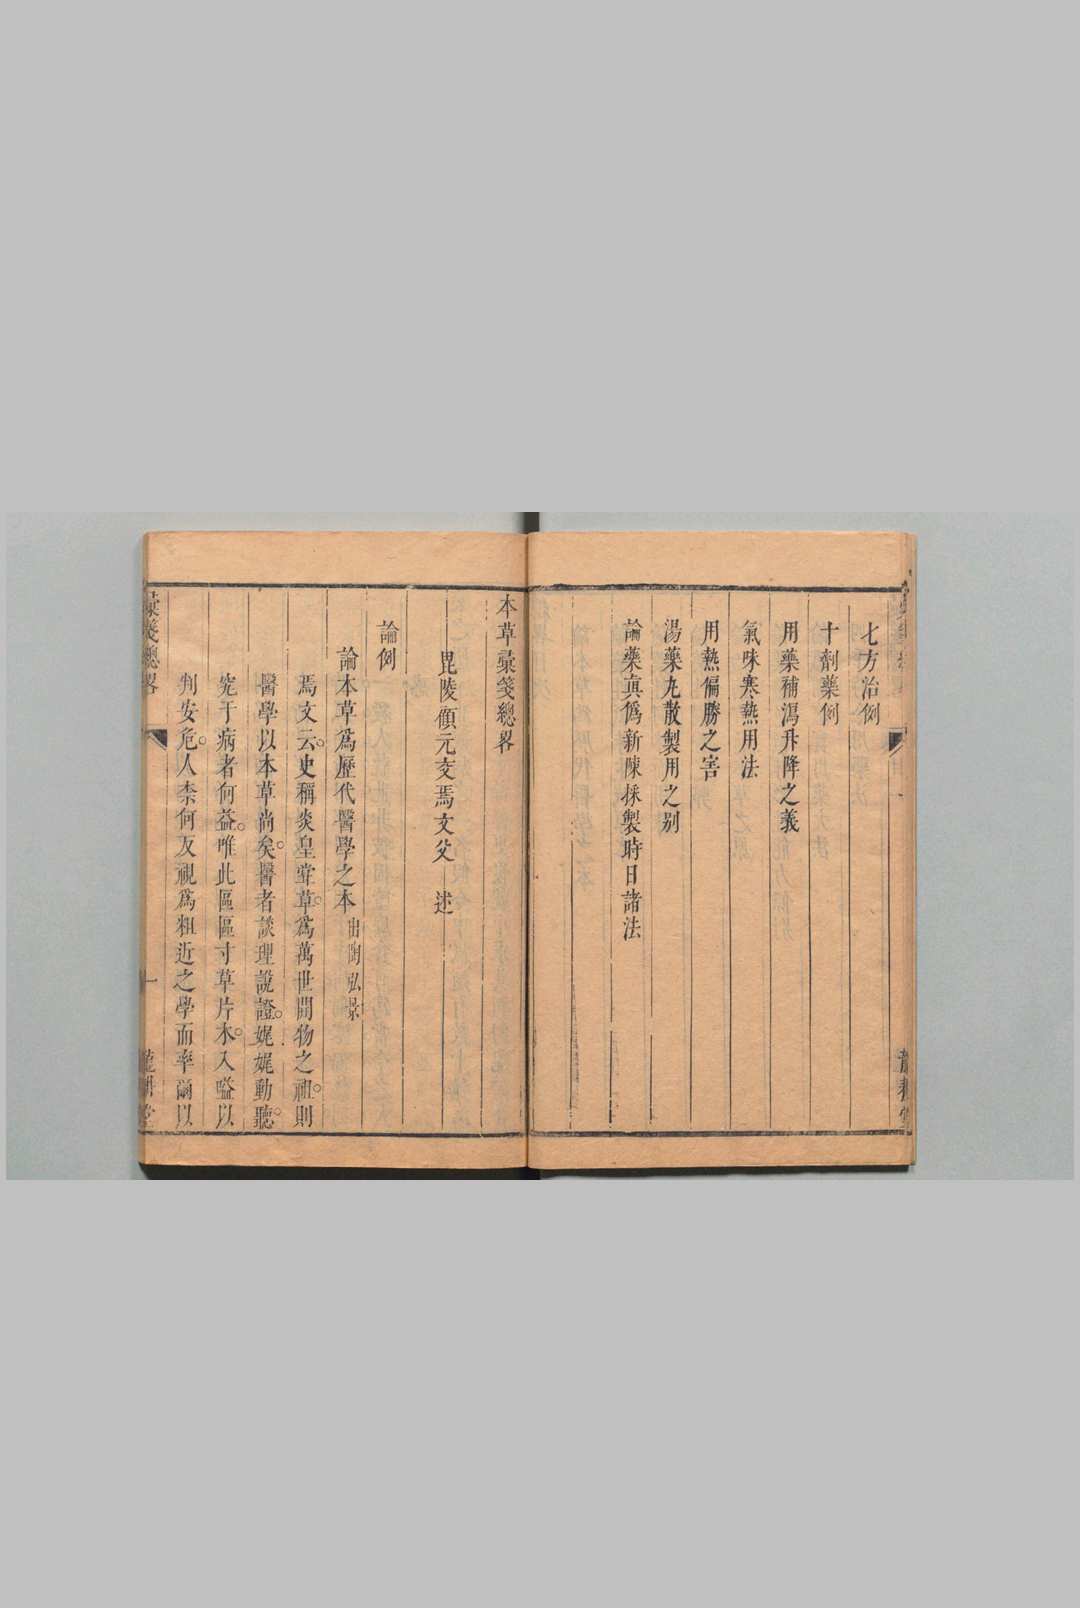 七方治例
十劑藥例
用藥補瀉升降之義
氣味寒熱用法
用熱偏勝之害
湯藥丸散製用之別
論藥真僞新陳採製時日諸法
本草彙箋總畧
毘陵顧元交焉文父 述
論例
論本草爲歷代醫學之本 出陶弘景
焉文云。史稱炎皇嘗草。爲萬世開物之祖。則
醫學以本草尚矣。醫者談理說證。娓娓動聽。
究于病者何益。唯此區區寸草片木。入嗌以
判安危。人柰何反視爲粗近之學而率爾以
彙箋總畧
一